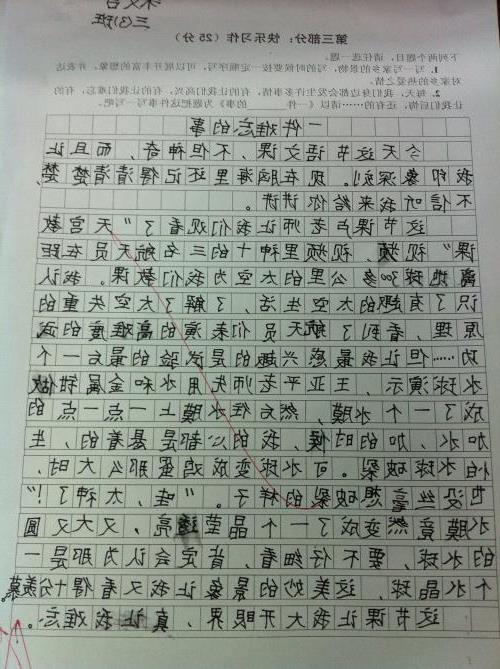 三(3)班
第三部分：快乐习作（25分）
下列两个题目，请任选一题。
1. 写一写家乡的景物，写的时候要按一定顺序写，可以展开丰富的想象，并表达
对家乡的热爱之情。
2. 每天，我们身边都会发生许多事情，有的让我们高兴，有的让我们难忘，有的
让我们后悔，还有的……请以《一件 的事》为题把这件事写一写吧。
一件难忘的事
今天这节语文课，不但神奇，而且让
我印象深刻。现在脑海里还记得清清楚楚，
不信听我来给你讲讲。
这节课卢老师让我们观看了“天宫教
课”视频，视频里神十的三名航天员在距
离地球300多公里的太空为我们教课。我认
识了有趣的太空生活、了解了太空失重的
原理、看到了航天员们表演的高难度的武
功……但让我最感兴趣的是试验的最后一个
水球演示，王亚平老师先用水和金属钳做
成了一个水膜，然后往水膜上一点一点的
加水，加的时候，我的心都是悬着的，生
怕水球破裂。可水球变成鸡蛋那么大时，
也没丝毫想破裂的样子。“哇，太神了！”
水膜竟然变成了一个晶莹透亮，又大又圆
的水球，要不仔细看，肯定会认为那是一
个水晶球，这美妙的景象让我又看得十分羡慕。
这节课让我大开眼界，真让我难忘。